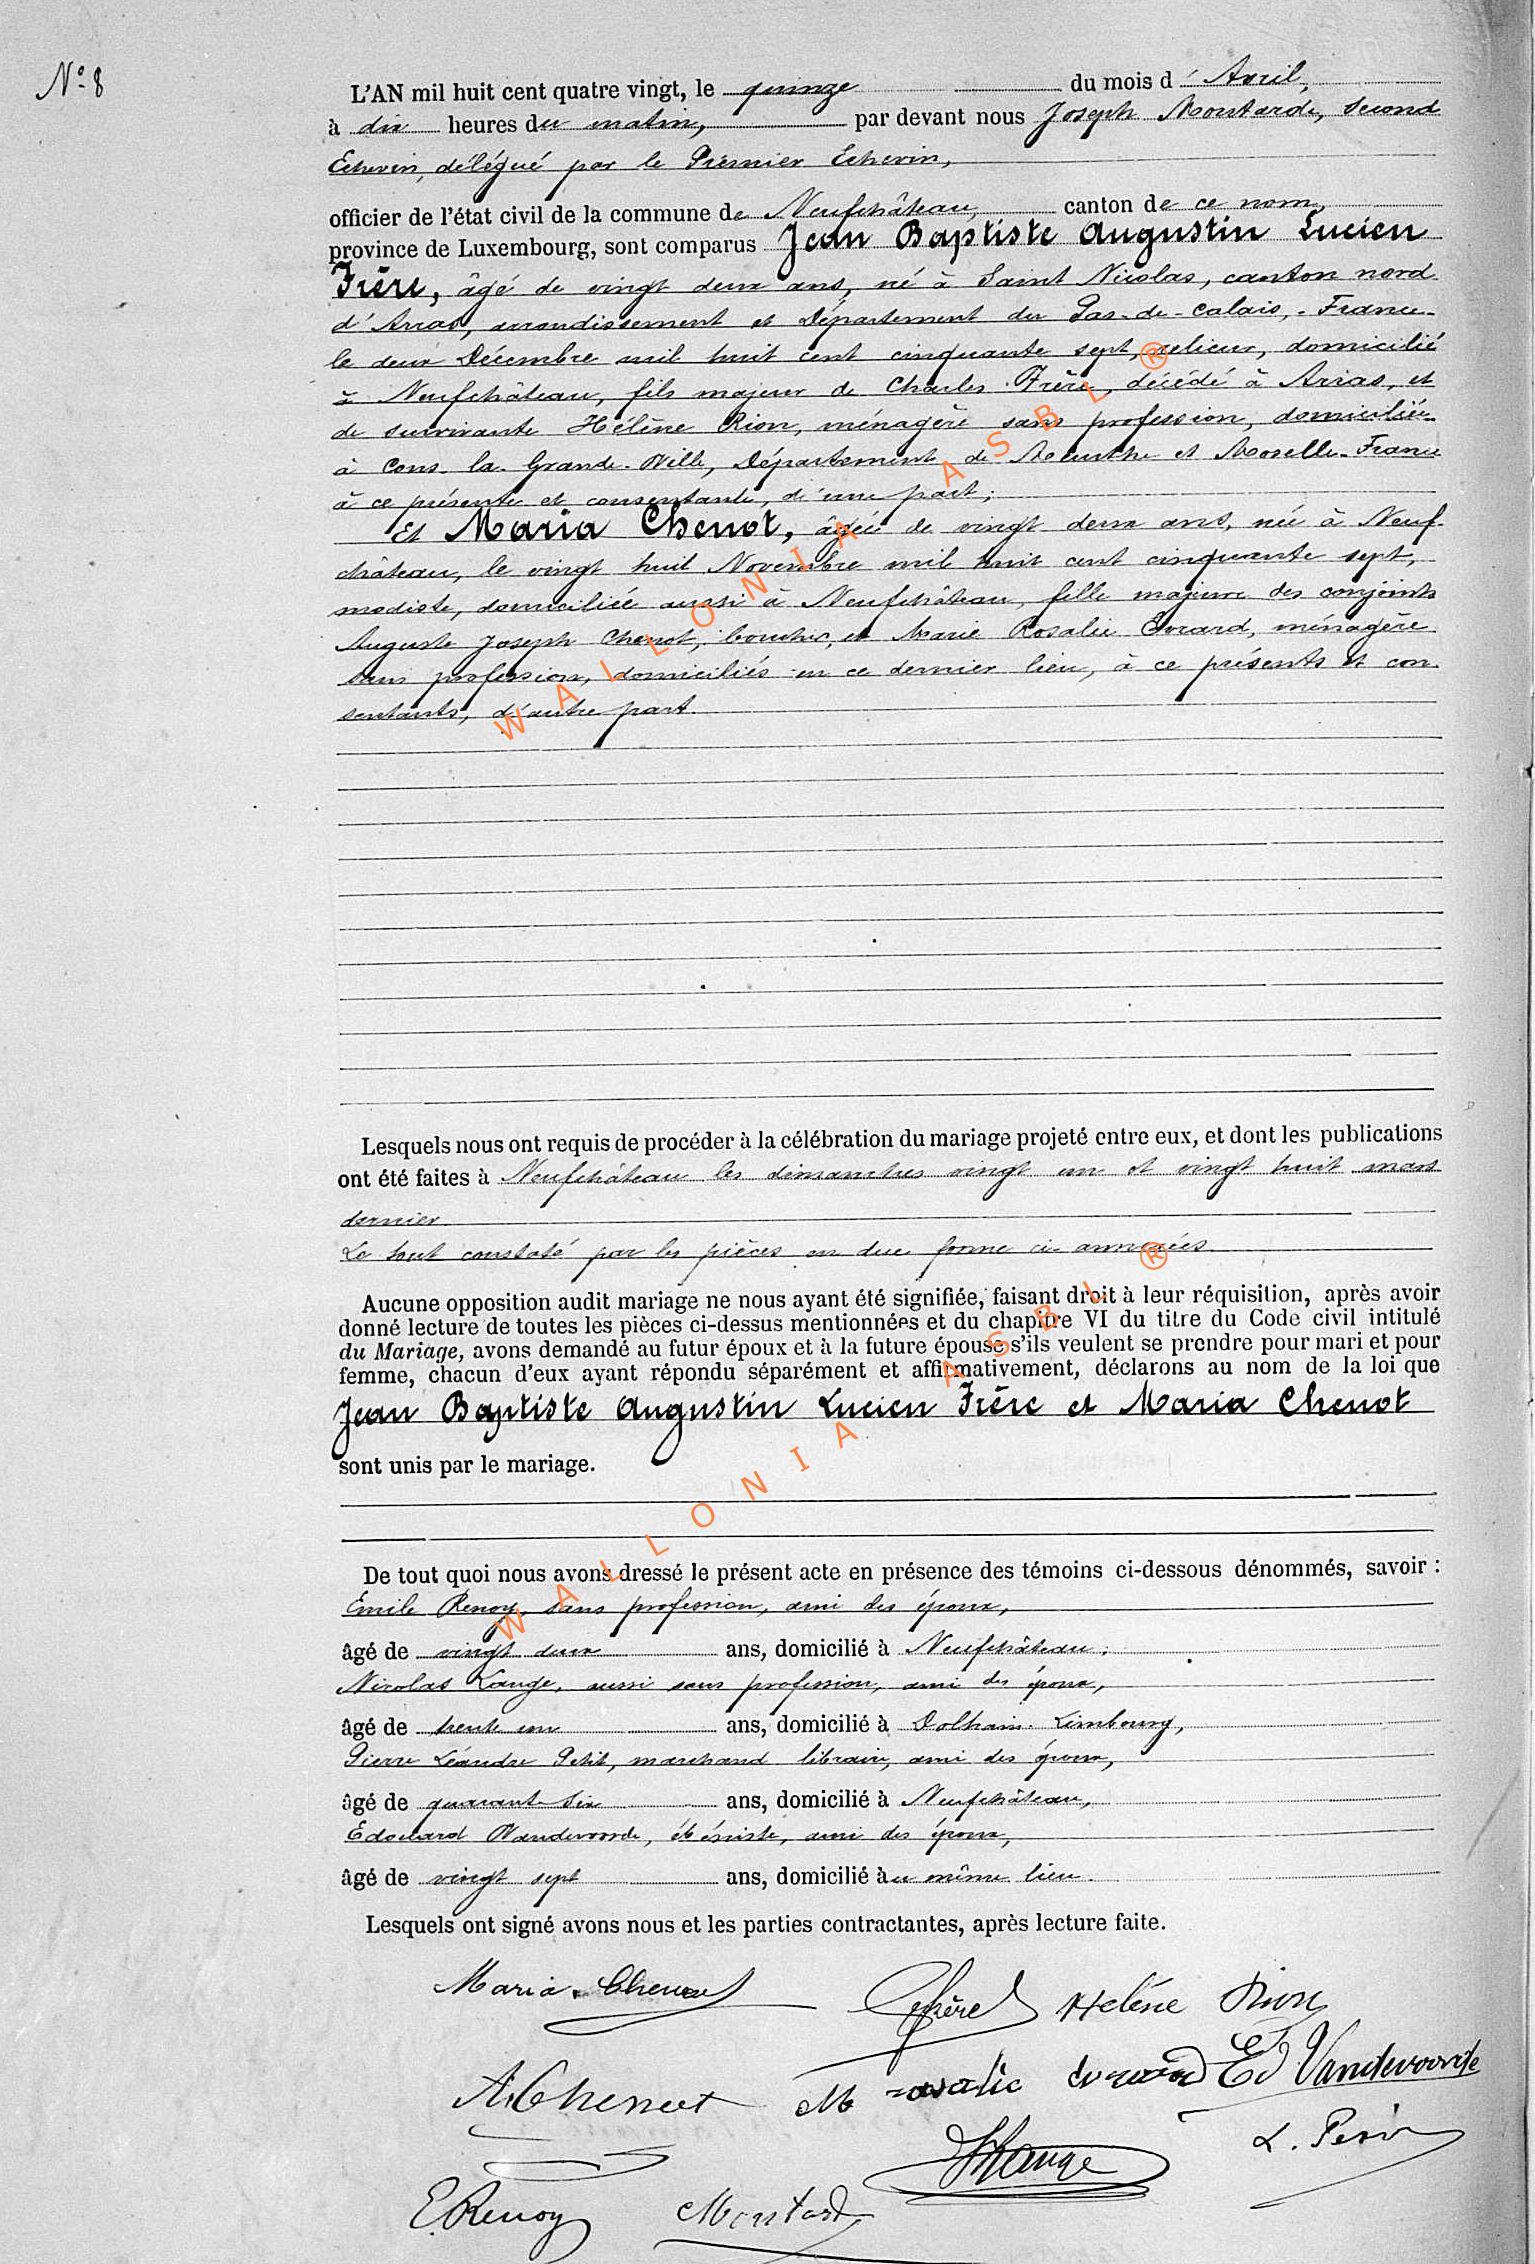 N° 8
L'AN mil huit cent quatre vingt, le quinze du mois d' Avril,
à dix heures du matin, par devant nous Joseph Moutarde, second
Echevin, délégué par le Premier Echevin,
officier de l'état civil de la commune de Neufchâteau, canton de ce nom,
province de Luxembourg, sont comparus Jean Baptiste Augustin Lucien
Frère, âgé de vingt deux ans, né à Saint Nicolas, canton nord
d'Arras, arrondissement et Département du Pas-de-Calais, - France -
le deux Décembre mil huit cent cinquante sept, relieur, domicilié
à Neufchâteau, fils majeur de Charles Frère, décédé à Arras, et
de survivante Hélène Rion, ménagère sans profession, domiciliée
à Cons-la-Grande-Ville, Département de Meurthe et Moselle-France
à ce présente et consentante, d'une part;
Et Maria Chenot, âgée de vingt deux ans, née à Neuf-
château, le vingt huit Novembre mil huit cent cinquante sept,
modiste, domiciliée aussi à Neufchâteau, fille majeure des conjoints
Auguste Joseph Chenot, boucher, et Marie Rosalie Evrard, ménagère
sans profession, domiciliés en ce dernier lieu, à ce présents et con-
sentants, d'autre part.
WALLONIA ASBL ®
Lesquels nous ont requis de procéder à la célébration du mariage projeté entre eux, et dont les publications
ont été faites à Neufchâteau les dimanches vingt un et vingt huit mars
dernier.
Le tout constaté par les pièces en due forme ci annexées.
Aucune opposition audit mariage ne nous ayant été signifiée, faisant droit à leur réquisition, après avoir
donné lecture de toutes les pièces ci-dessus mentionnées et du chapitre VI du titre du Code civil intitulé
du Mariage, avons demandé au futur époux et à la future épouse s'ils veulent se prendre pour mari et pour
femme, chacun d'eux ayant répondu séparément et affirmativement, déclarons au nom de la loi que
Jean Baptiste Augustin Lucien Frère et Maria Chenot
sont unis par le mariage.
WALLONIA ASBL ®
De tout quoi nous avons dressé le présent acte en présence des témoins ci-dessous dénommés, savoir :
Emile Renoy, sans profession, ami des époux,
âgé de vingt deux ans, domicilié à Neufchâteau;
Nicolas Lange, aussi sans profession, ami des époux,
âgé de trente un ans, domicilié à Dolhain-Limbourg,
Pierre Léandre Petit, marchand libraire, ami des époux,
âgé de quarante six ans, domicilié à Neufchâteau,
Edouard Vandevoorde, ébéniste, ami des époux,
âgé de vingt sept ans, domicilié au même lieu.
Lesquels ont signé avons nous et les parties contractantes, après lecture faite.
Maria Chenot Frère Hélène Rion
A. Chenot M rosalie evrard Ed Vandevoorde
Lange L. Petit
E. Renoy Moutarde